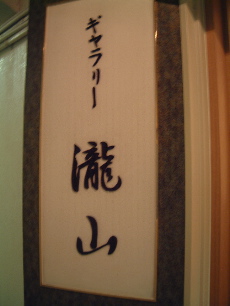 ギャラリー
瀧山